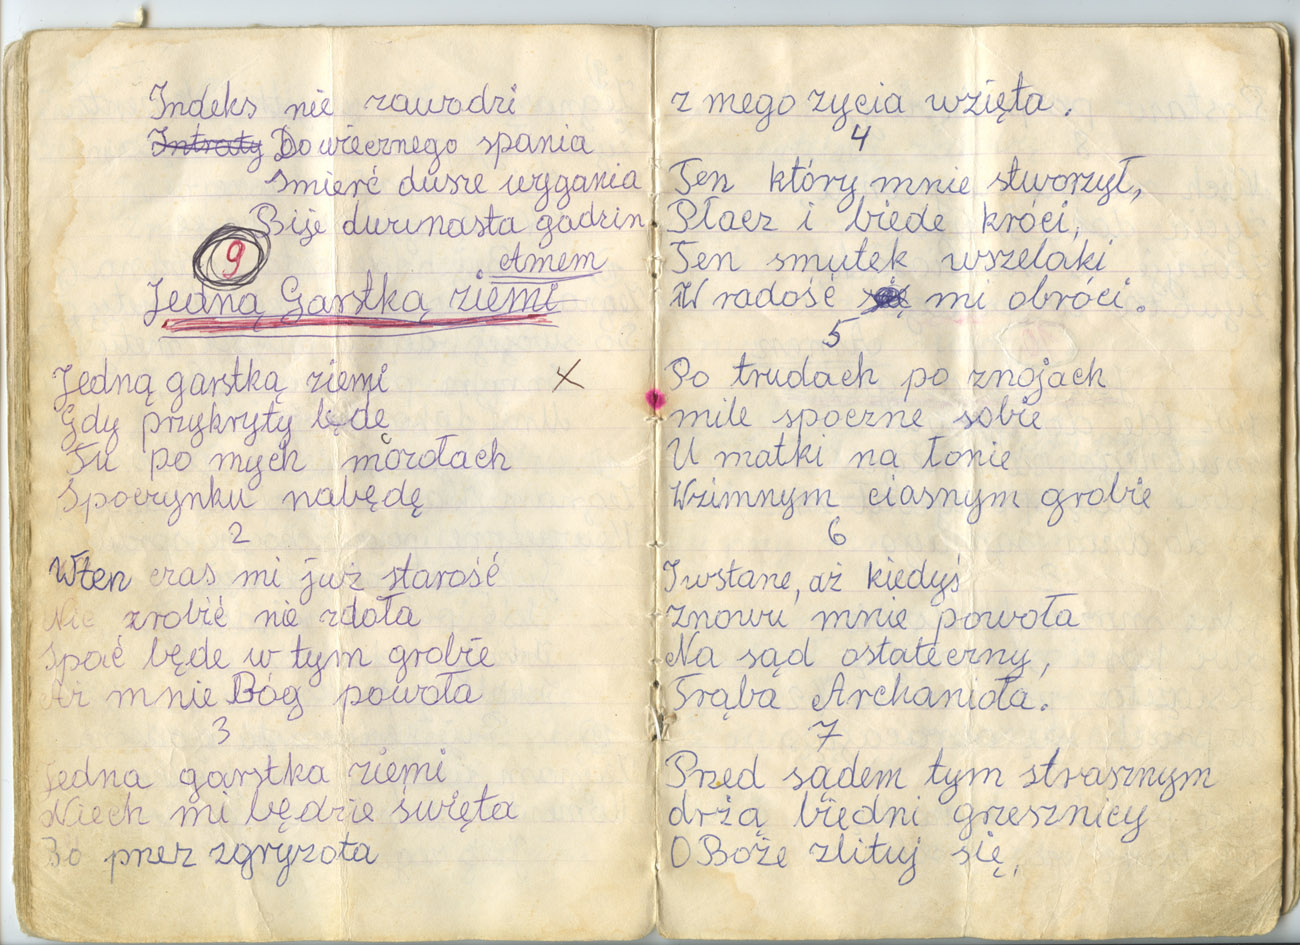 Indeks nie zawodzi
Intraty Do wiecznego spania
Smierć dusze wygania
Bije dwunasta godzin
Amem
9
Jedną Garstką ziemi
Jedną garstką ziemi
X
Gdy przykryty będę
Tu po mych mozołach
Spoczynku nabędę
2
Wten czas mi już starość
Nic zrobić nie zdoła
Spać będe w tym grobie
Aż mnie Bóg powoła
3
Jedna garstka ziemi
Niech mi będzie święta
Bo przez zgryzota
z mego zycia wzięta.
4
Ten który mnie stworzył,
Płacz i biede króci,
Ten smutek wszelaki
W radość się mi obróci.
5
Po trudach po znojach
mile spoczne sobie
U matki na łonie
Wzimnym ciasnym grobie
6
I wstane, aż kiedyś
znowu mnie powoła
Na sąd ostateczny,
Trąba Archanioła.
7
Przed sądem tym strasznym
drżą biedni grzesznicy
O Boże zlituj się,